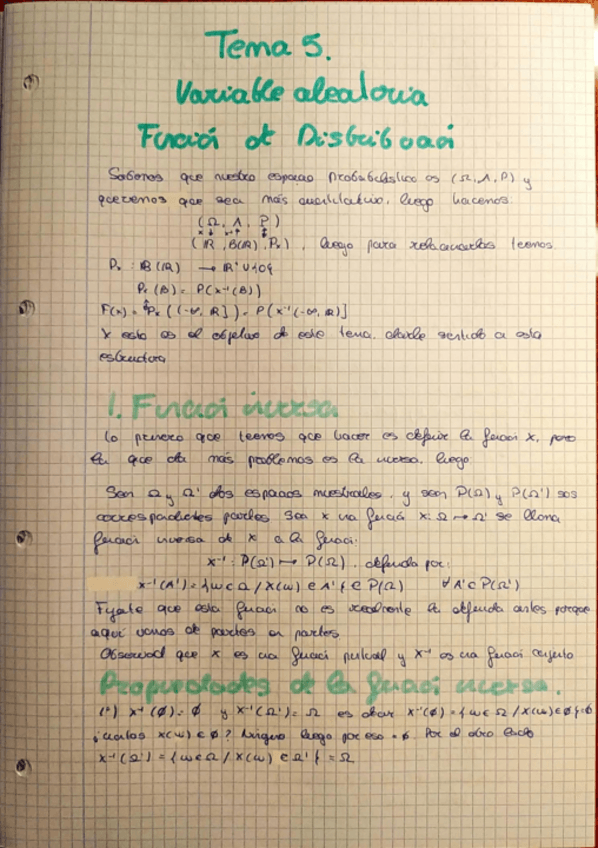 Tema 5.
Variable aleatoria
Función de Distribución
Sabemos que nuestro espacio probabilístico es (Ω, A, P) y
queremos que sea más cuantitativo, luego hacemos:
(Ω, A, P)
(ℝ, B(ℝ), Pₓ), luego para relacionarlos tenemos
Pₓ : B(ℝ) → ℝ⁺∪{0}
Pₓ(B) = P(x⁻¹(B))
F(x) = Pₓ((-∞, ℝ]) = P(x⁻¹(-∞, ℝ)]
Y esto es el objetivo de este tema, darle sentido a esta
estructura
1. Función inversa
Lo primero que tenemos que hacer es definir la función x, pero
la que da más problemas es la inversa, luego
Sean Ω y Ω' dos espacios muestrales, y sean P(Ω) y P(Ω') sus
correspondientes partes. Sea x una función x: Ω → Ω' se llama
función inversa de x a la función:
x⁻¹ : P(Ω') ↦ P(Ω), definida por:
x⁻¹(A') = {ω∈Ω / X(ω) ∈ A'} ∈ P(Ω) ∀A'∈P(Ω')
Fijate que esta función no es realmente la definida antes porque
aquí vamos de partes en partes
Observad que x es una función puntual y x⁻¹ es una función conjunto
Propiedades de la función inversa.
(1º) x⁻¹(∅) = ∅ y x⁻¹(Ω') = Ω es decir x⁻¹(∅) = {ω∈Ω / X(ω)∈∅} = ∅
¿cuántos x(ω) ∈ ∅? Ninguno luego por eso = ∅. Por el otro lado
x⁻¹(Ω') = {ω∈Ω / X(ω) ∈ Ω'} = Ω